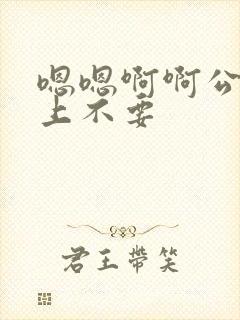 嗯嗯啊啊公
上不要
君王带笑